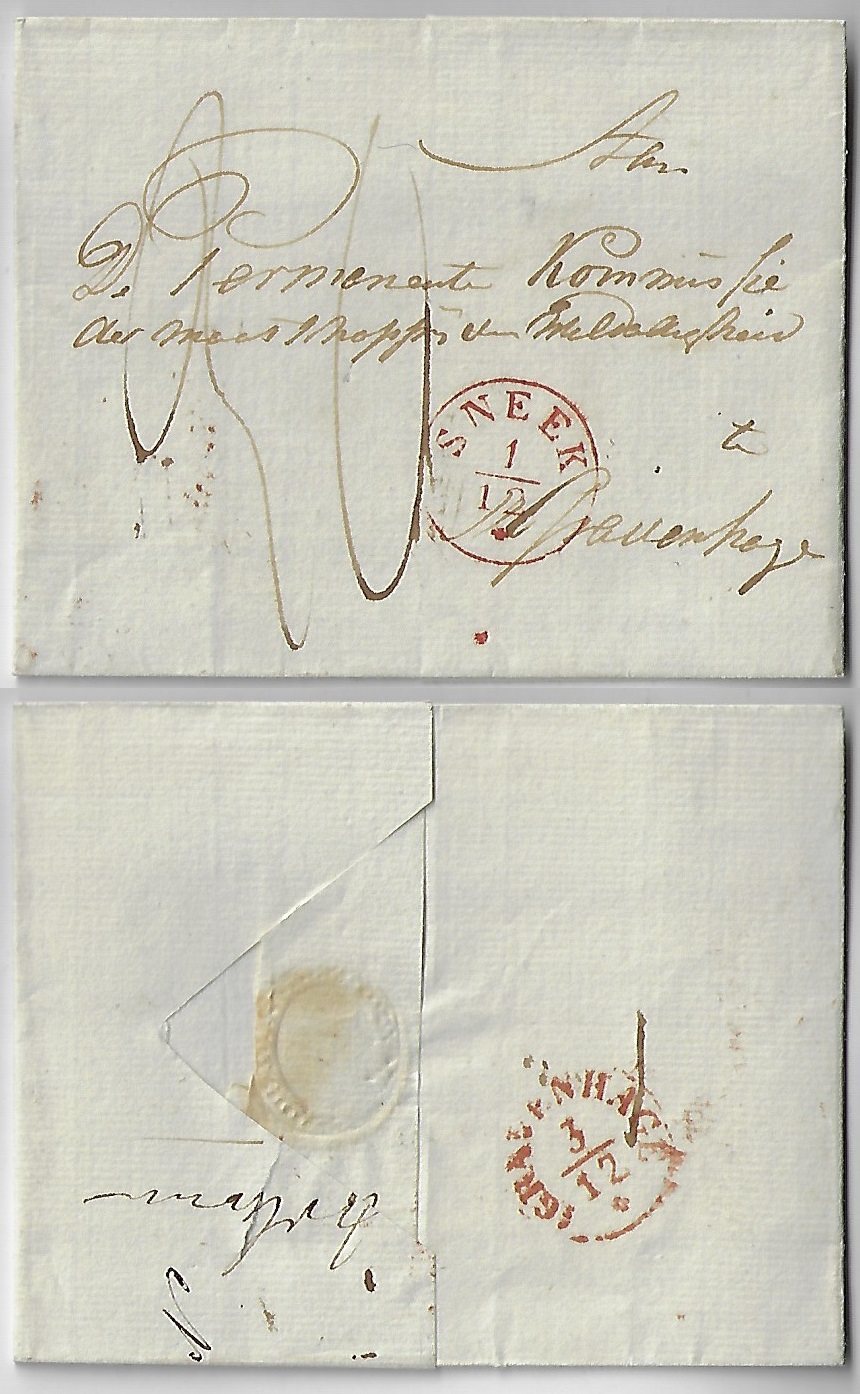 Aan
De Permanente Kommissie
der maatschappij van Weldadigheid
te
s'Gravenhage
SNEEK
1
12
'SGRAVENHAGE
3
12